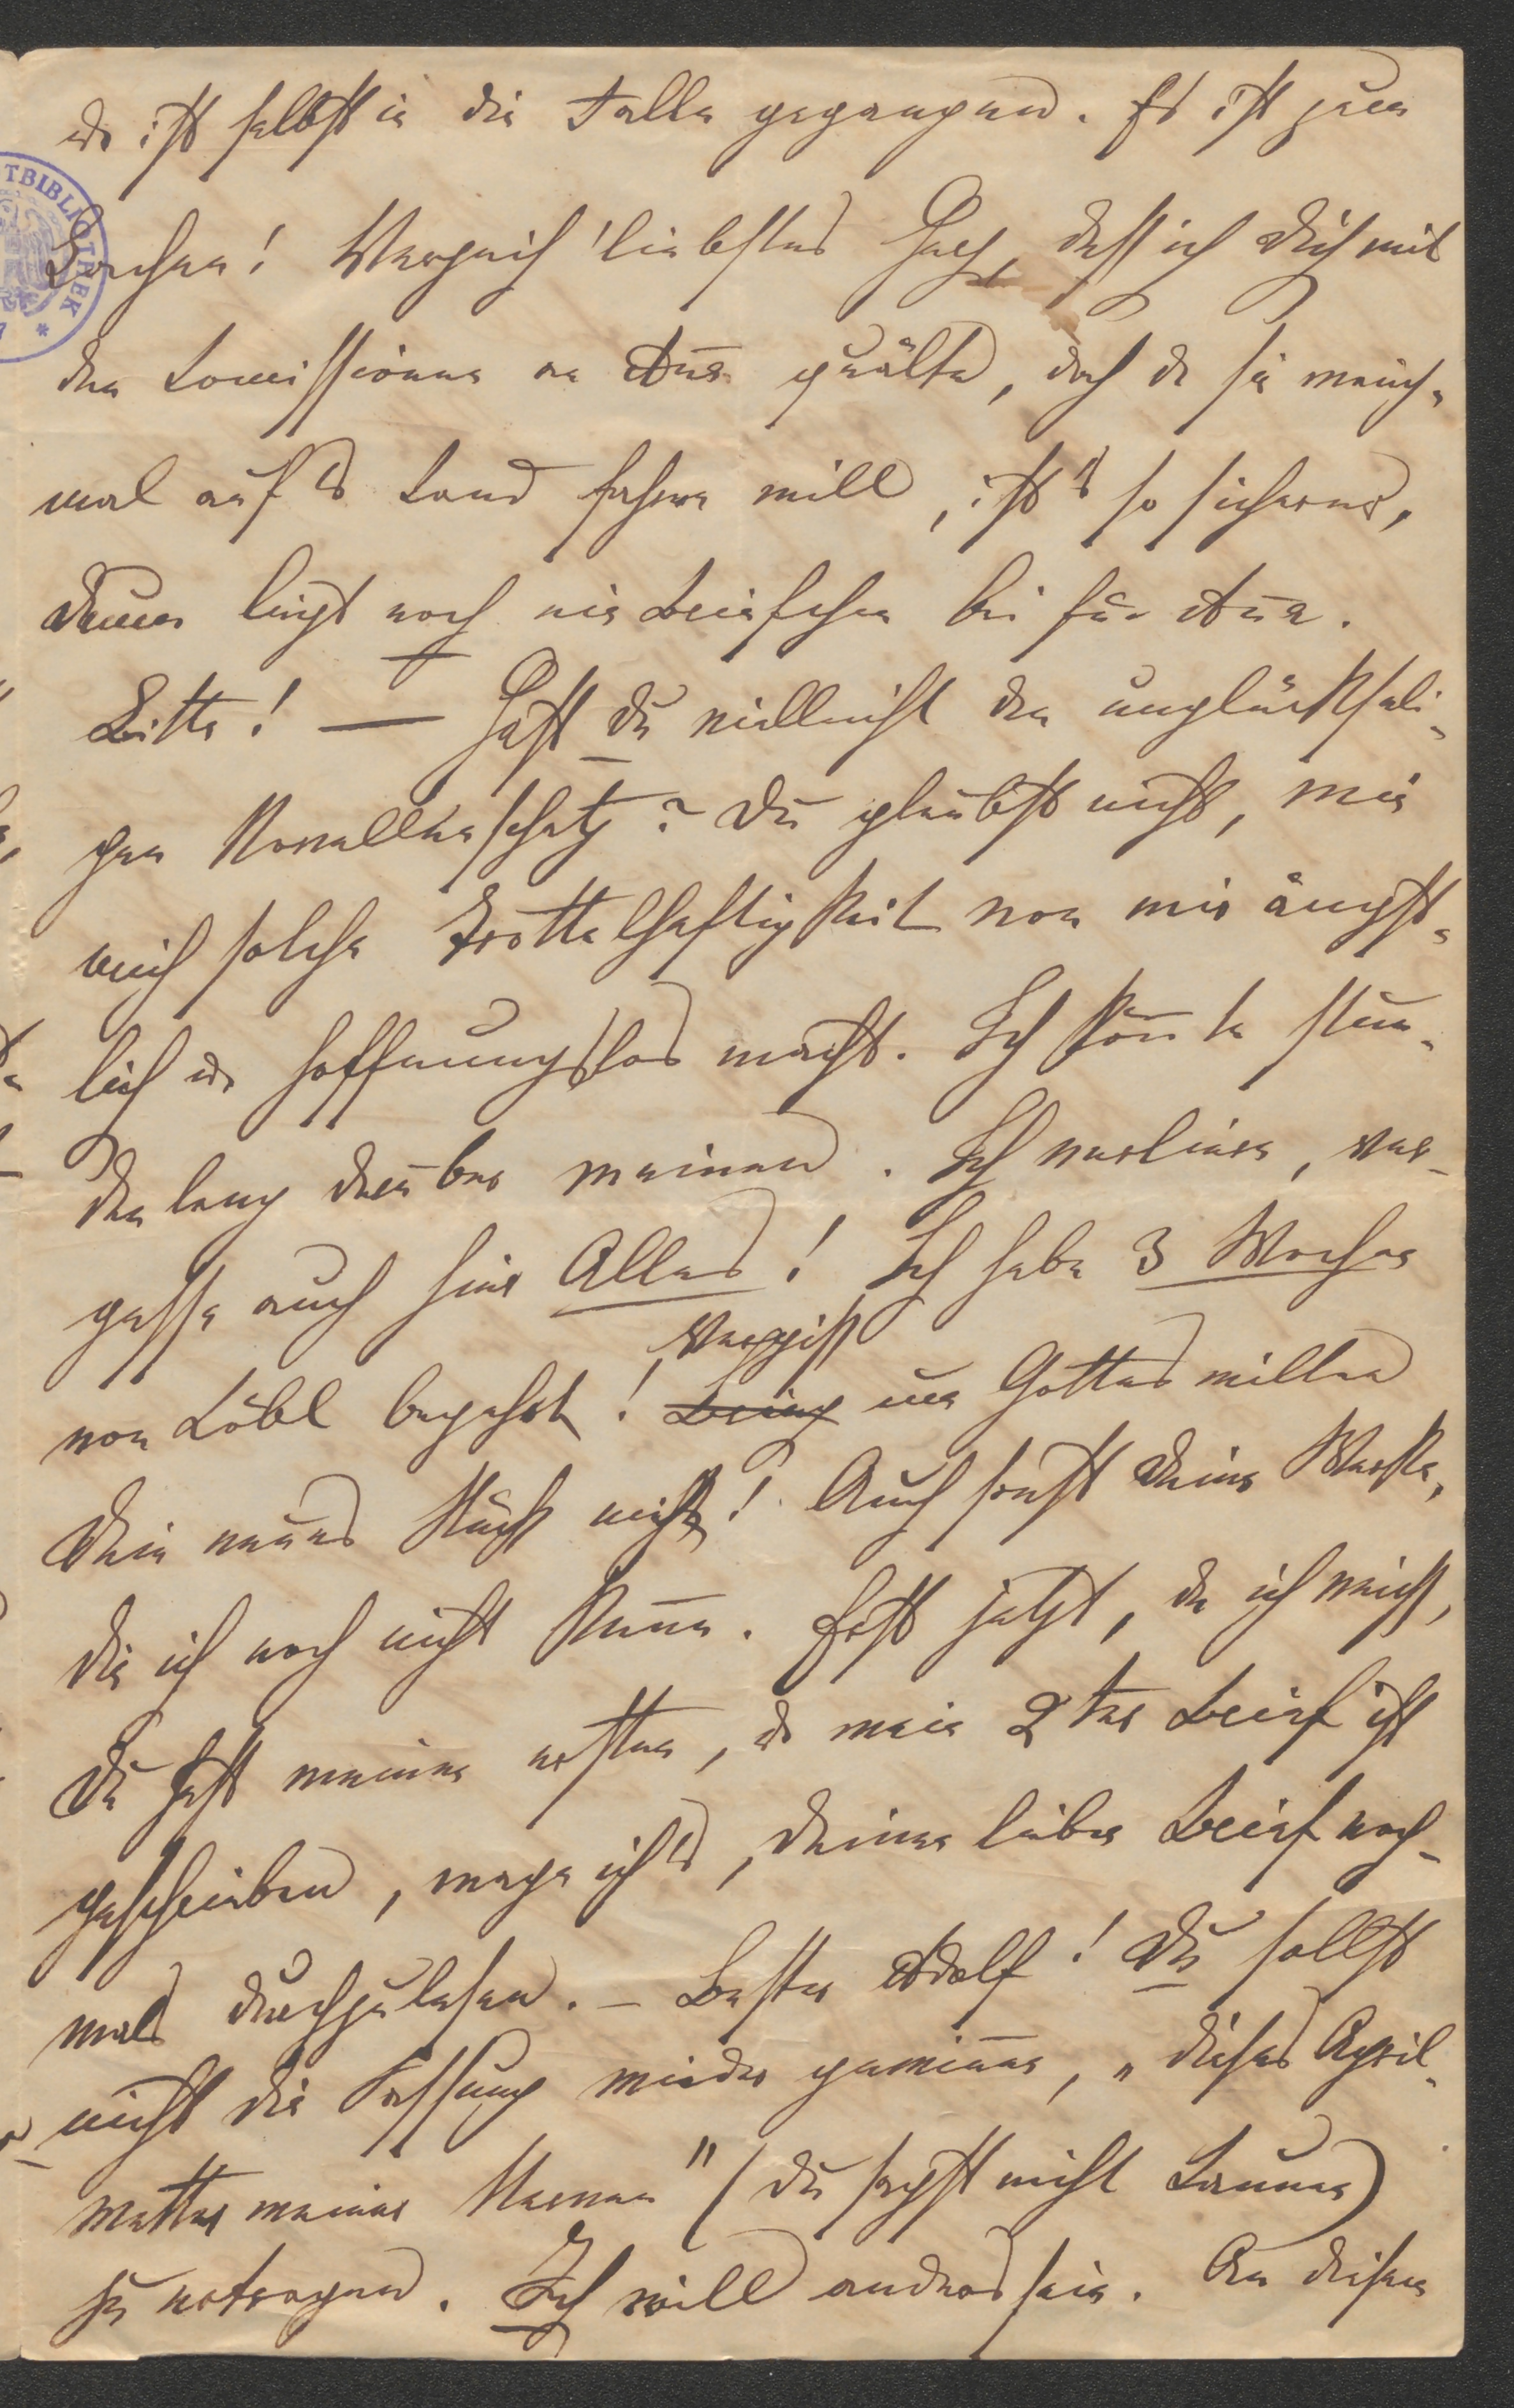 u. ist selbst in die Falle gegangen. Es ist zum
Lachen! Verzeih' liebstes Herz, dass ich Dich mit
den Comissionen an Aña quälte, doch da sie manch-
mal auf's Land fahren will, ist's so sicherer,
Darum liegt noch ein Briefchen bei für Aña.
Bitte! — Hast Du vielleicht den unglücksseli-
gen Novellenschatz? Du glaubst nicht, wie
mich solche Trottelhaftigkeit von mir ängst-
lich u. hoffnungslos macht. Ich könnte stun-
denlang darüber weinen. Ich verliere, ver-
gesse auch hier Alles! Ich habe 3 Wochen
von Löbl begehrt! Vergiss
Bring um Gottes willen
Dein neues Stück nicht! Auch sonst Deine Werke,
die ich noch nicht kenne. Erst jetzt, da ich weiß,
Du hast meinen ersten, u. mein 2ter Brief ist
geschrieben, wage ich's, Deinen lieben Brief noch-
mals durchzulesen. – Bester Adolf! Du sollst
nicht die Fassung wieder gewinnen, „dieses April-
wetter meiner Nerven" (Du sagst nicht Launen)
zu ertragen. Ich will anders sein. An diesen
TBIBLIOTHEK